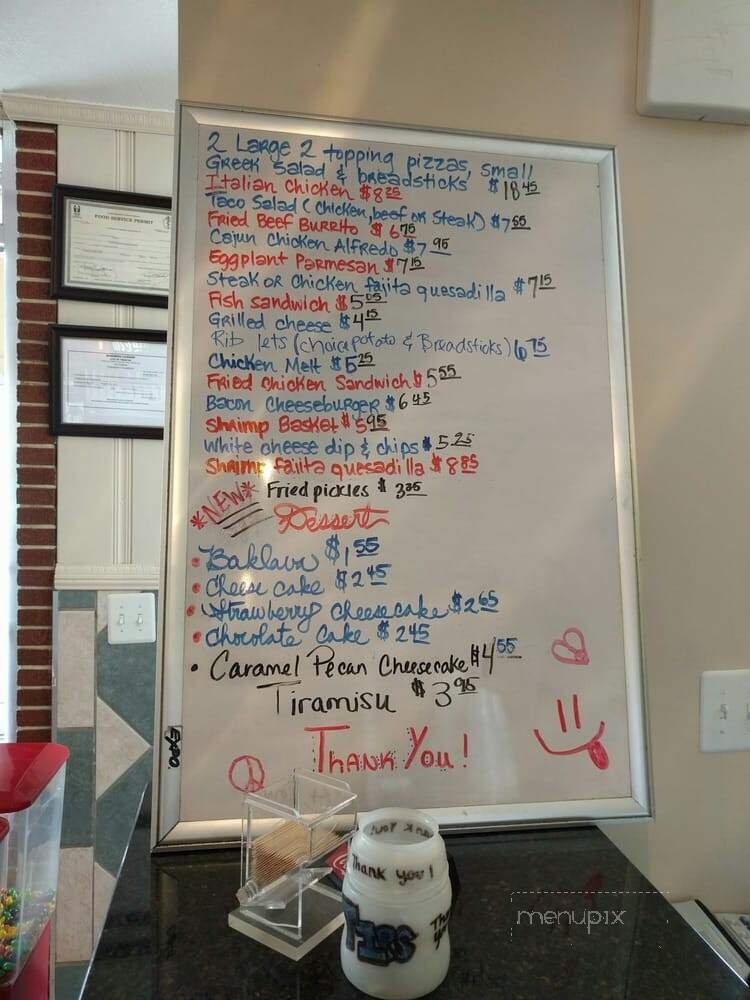 2 Large 2 topping pizzas, small
Greek Salad & breadsticks $18 45
Italian Chicken $8 25
Taco Salad (chicken, beef or Steak) $7 65
Fried Beef Burrito $6 75
Cajun Chicken Alfredo $7 95
Eggplant Parmesan $7 15
Steak or Chicken fajita quesadilla $7 15
Fish sandwich $5 05
Grilled cheese $4 15
Rib lets (choice potato & Breadsticks) 6 75
Chicken Melt $5 25
Fried Chicken Sandwich $5 55
Bacon Cheeseburger $6 45
Shrimp Basket $5 95
White cheese dip & chips $5 25
Shrimp fajita quesadilla $8 85
*NEW* Fried pickles $
Dessert
• Baklava $1 55
• Cheese cake $2 45
• Strawberry Cheesecake $2 65
• Chocolate Cake $2 45
• Caramel Pecan Cheesecake $4 55
Tiramisu $3 95
Thank You!
EXPO
FOOD SERVICE PERMIT
Thank you!
TIPS
menupix